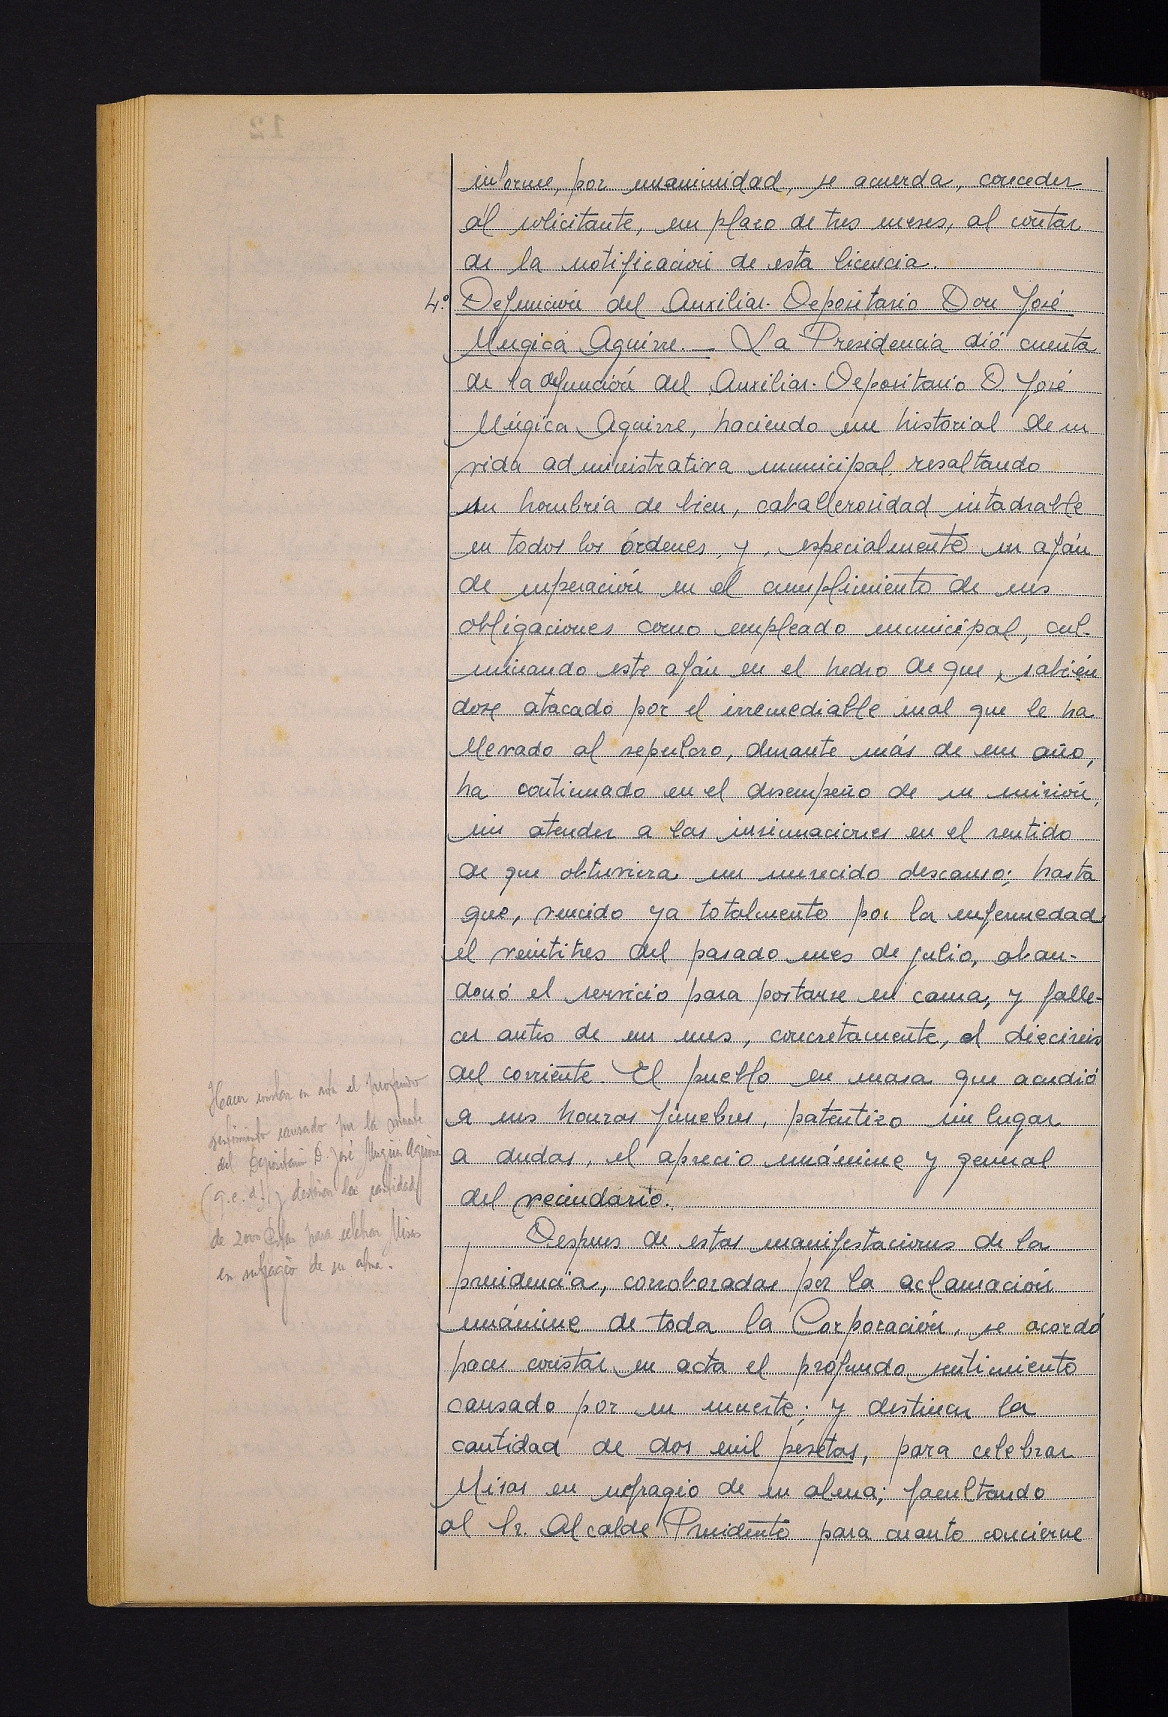 informe, por unanimidad, se acuerda, conceder
al solicitante, un plazo de tres meses, al contar
de la notificación de esta licencia.
4.º Defunción del Auxiliar-Depositario Don José
Mugica Aguirre. — La Presidencia dió cuenta
de la defunción del Auxiliar-Depositario D. José
Múgica Aguirre, haciendo un historial de su
vida administrativa municipal, resaltando
su hombría de bien, caballerosidad intachable
en todos los órdenes, y, especialmente su afán
de superación en el cumplimiento de sus
obligaciones como empleado municipal, cul-
minando este afán en el hecho de que, sabién
dose atacado por el irremediable mal que le ha
llevado al sepulcro, durante más de un año,
ha continuado en el desempeño de su misión,
sin atender a las insinuaciones en el sentido
de que obtuviera un merecido descanso; hasta
que, vencido ya totalmente por la enfermedad
el veintitres del pasado mes de julio, aban-
donó el servicio para postarse en cama, y falle-
cer antes de un mes, concretamente, el dieciseis
del corriente. El pueblo en masa que acudió
a sus honras fúnebres, patentizo sin lugar
a dudas, el aprecio unánime y general
del vecindario.
Despues de estas manifestaciones de la
presidencia, corroboradas por la aclamación
unánime de toda la Corporación, se acordó
hacer constar en acta el profundo sentimiento
causado por su muerte; y destinar la
cantidad de dos mil pesetas, para celebrar
Misas en sufragio de su alma; facultando
al Sr. Alcalde Presidente para cuanto concierne
Hacer constar en acta el profundo
sentimiento causado por la muerte
del Depositario D. José Mugica Aguirre
(q.e.d.) y destinar la cantidad
de 2000 Ptas para celebrar Misas
en sufragio de su alma.